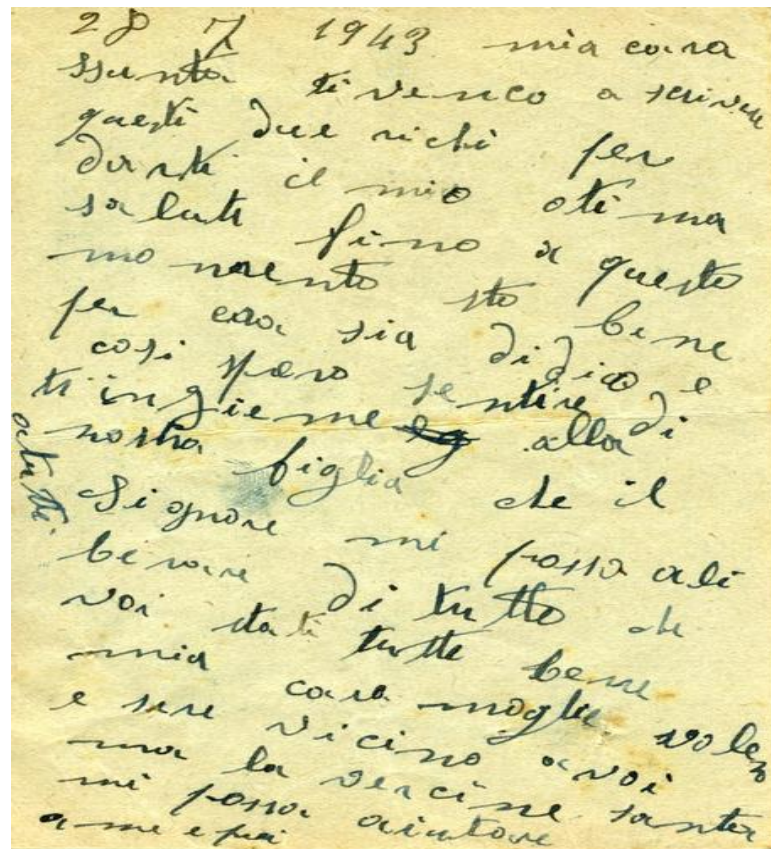 28 7 1943 mia cara
ssunta ti venco a scrivere
questi due richi per
dirti il mio otima
saluti fino a questo
momento sto bene
per cosi sia di dio e
cosi spero sentire di
ti insieme alla
nostra figlia che il
Signore mi possa ali
berare di tutto che
voi stati tutte bene
mia cara moglie volen
e sere vicino a voi
ma la vercine santa
mi possa aiutare
a me e poi
a tutti